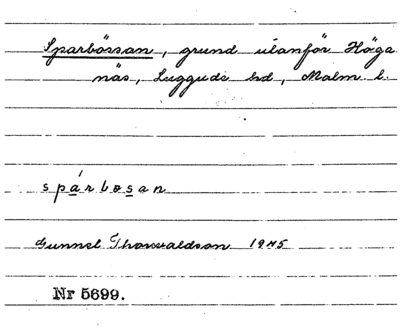 Sparbössan, grund utanför Höga
näs, Luggude hd, Malm. l.
spárbosan
Gunnel Thorvaldson 1945
Nr 5699.